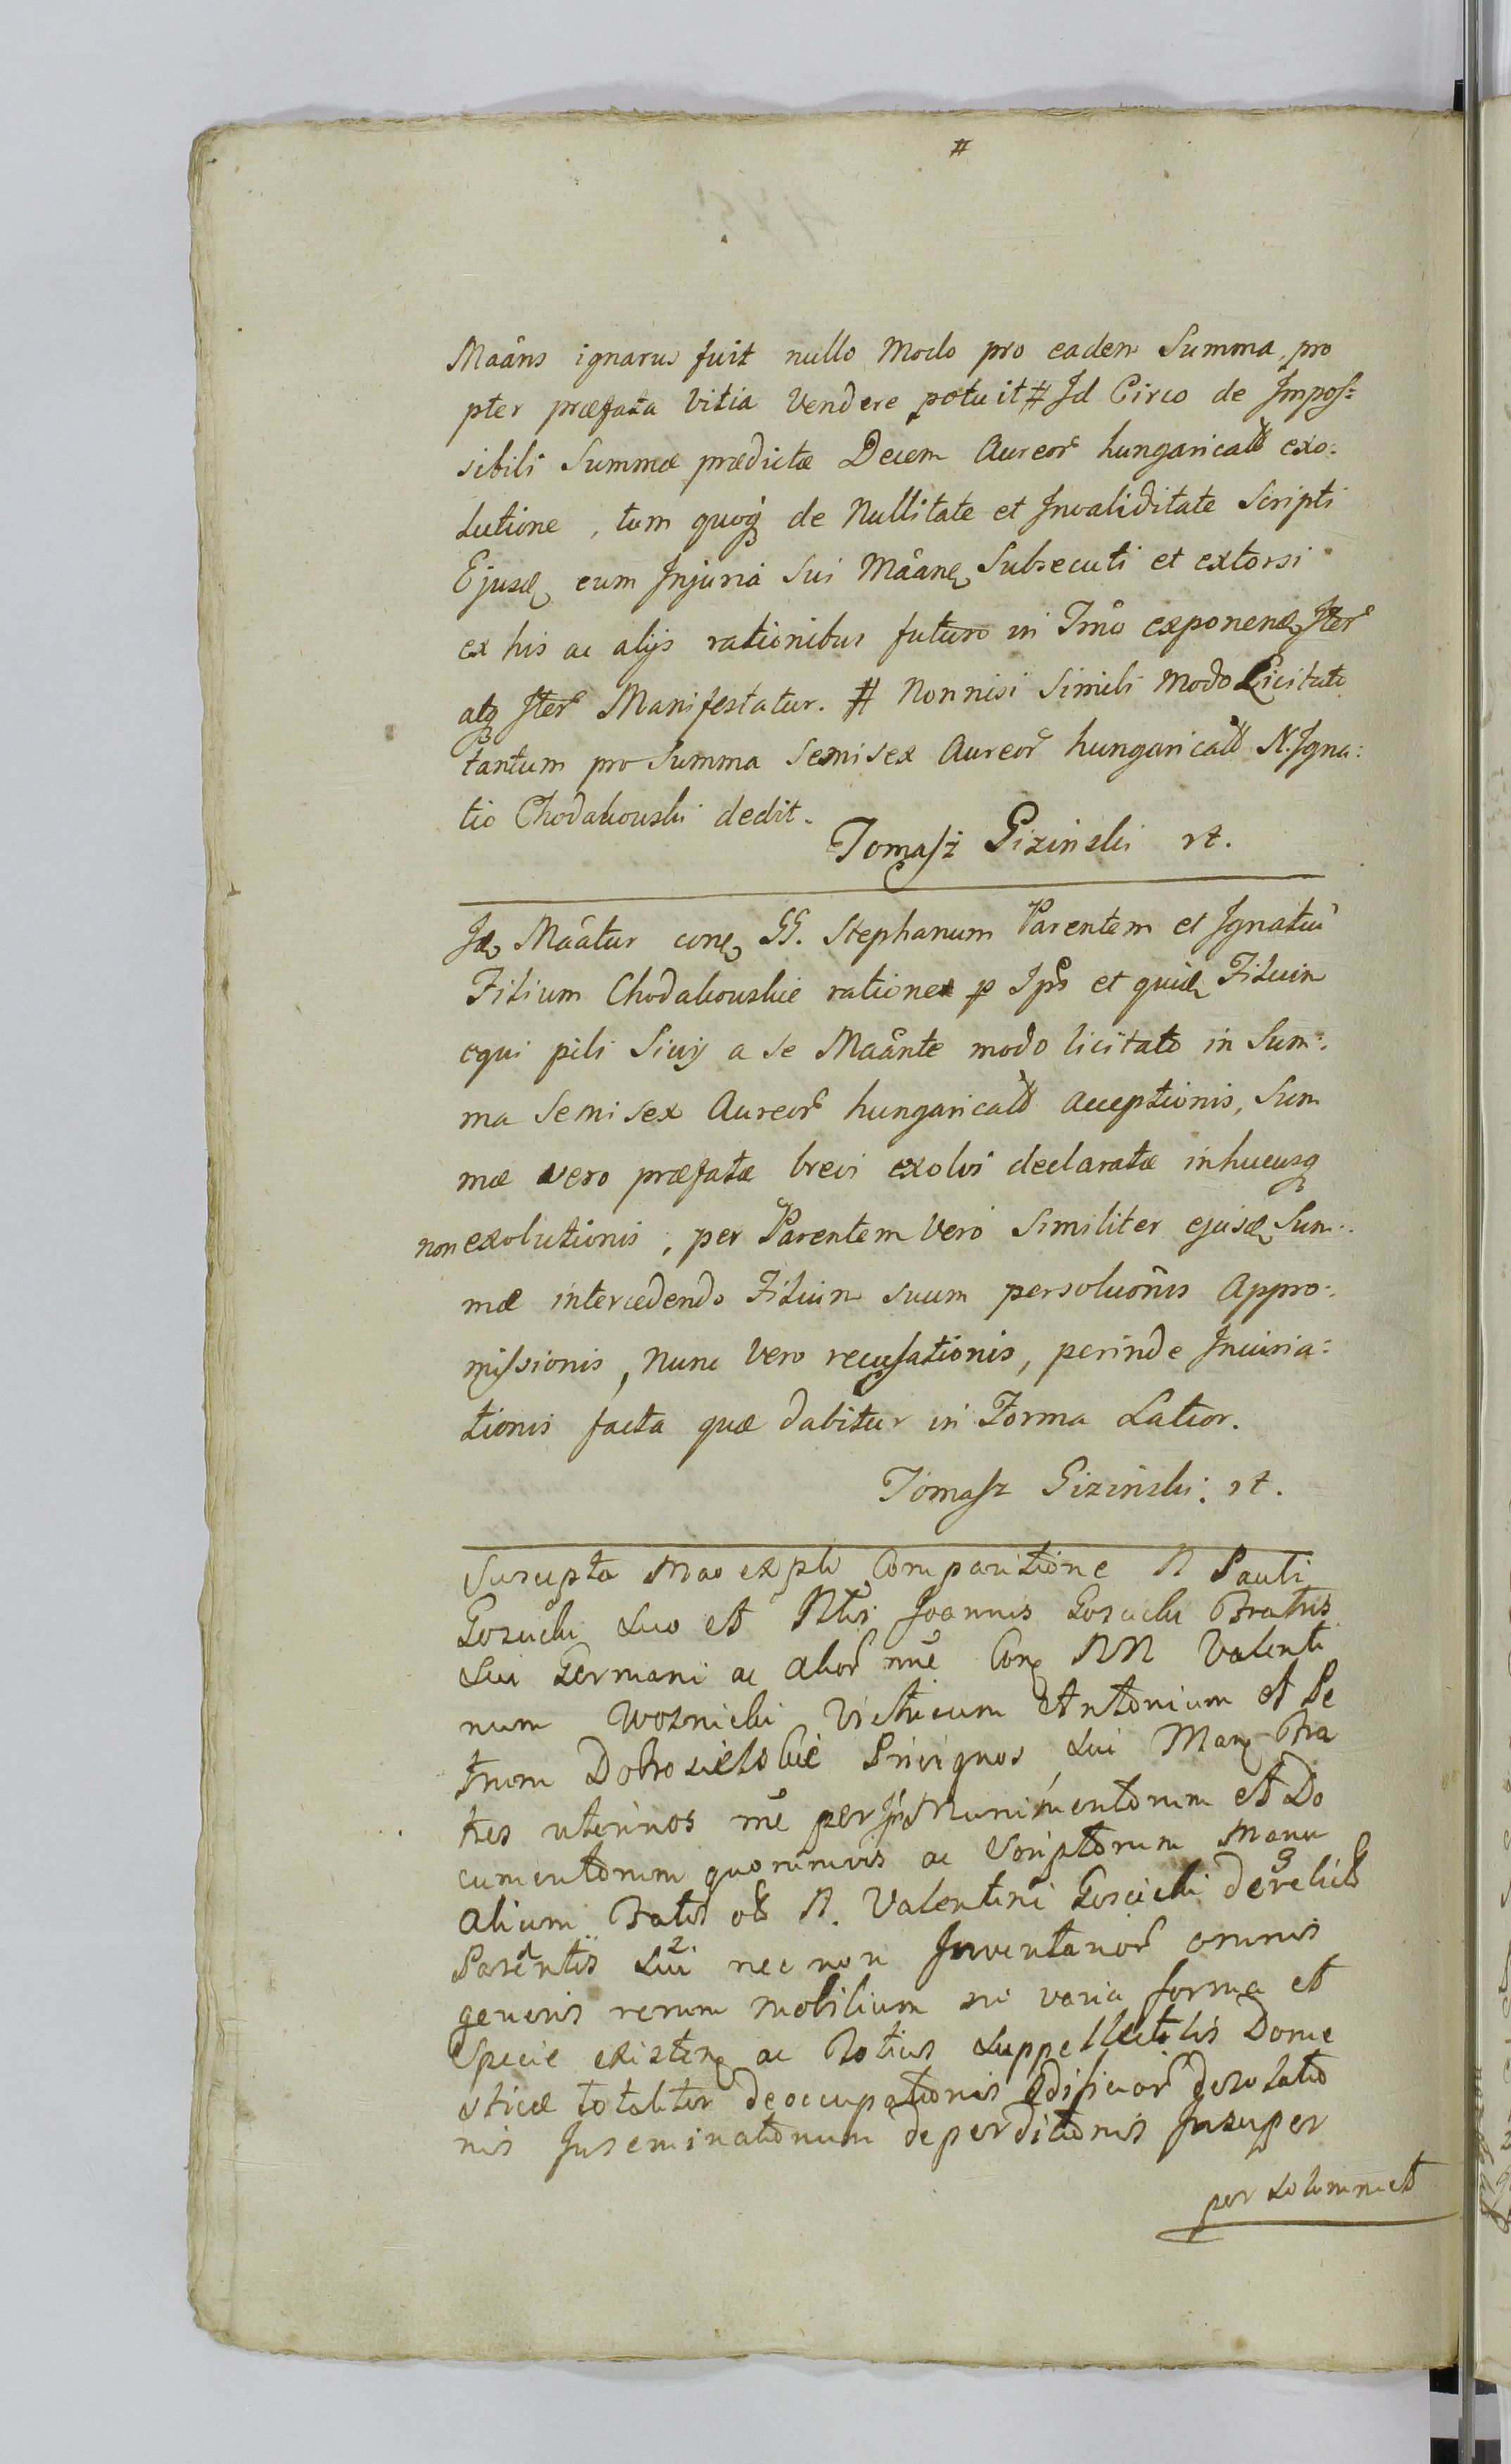 #
Maãns ignarus fuit nullo Modo pro eadem Summa, pro
pter præfata Vitia Vendere potuit # Id Circo de Impos=
sibili Summæ prædictæ Decem Aureor hungaricald exo:
lutione, tum quoq de Nullitate et Invaliditate Scripti
Ejusd cum Injuria Sui Maãne Subsecuti et extorsi
ex his ac alijs rationibus futuro in Tmo exponend Iter
atq Iter Manifestatur. # Nonnisi Simili Modo Licitato
tantum pro Summa Semisex Aureor hungaricald N. Igna:
tio Chodakouski dedit.
Tomasz Gizinski rt.
Id Maãtur conq GG. Stephanum Parentem et Ignatiu
Filium Chodakouskie ratione p Ips et quid Filium
equi pili Siuy a se Maãnte modo licitato in Sum:
ma Semisex Aureor hungaricald acceptionis, Sum
mæ vero præfatæ brevi exolvi declaratæ inhucusq
non exolutionis, per Parentem Vero Similiter ejusd Sum:
mæ intercedendo Filium suum persoluonis Appro:
missionis, Nunc Vero recusationis, perinde Iniuria:
tionis facta quæ dabitur in Forma Latior.
Tomasz Gizinski: rt.
Suscepta Mao explo Comparitione N Pauli
Gosucki suo et Ntis Joannis Gosucki Fratris
Sui Germani ac alior nne Conq NN Valenti
num Woznicki Victricum Antonium et Pe
trum Dobrosielskie Privignos Sui Manq Fra
tres uterinos me per Ips Munimentorum et Do
cumentorum quorumvis ac Scriptorum Manu
alium Fatis ol N. Valentini Gosucki 3 derelict
1 Parentis 2 Sui nec non Inventarior omnis
generis rerum mobilium in varia forma et
Specie existenq ac totius Suppellectilis Dome
sticæ totaliter deoccupationis Edificior desolatio
nis Inseminationum deperditionis Insuper
per Solummet